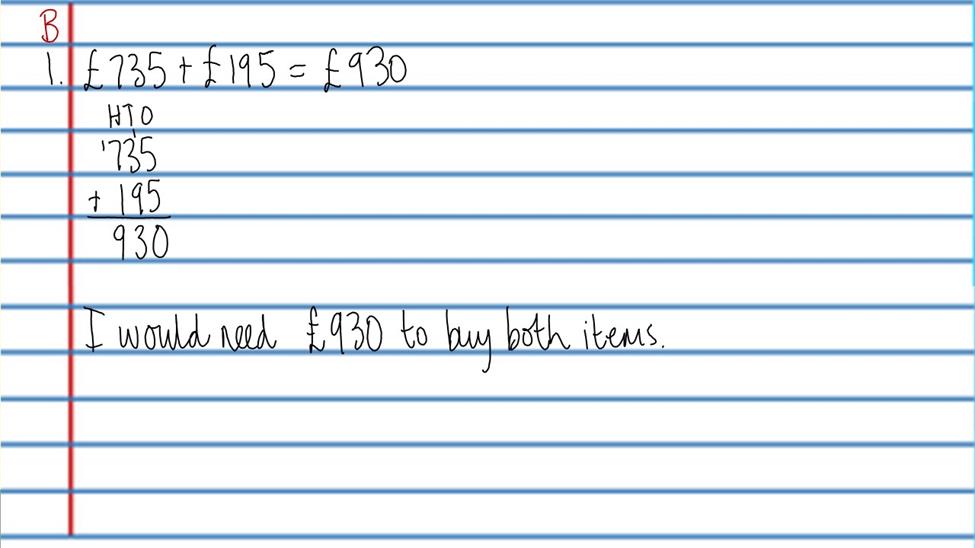 B
1. £735 + £195 = £930
HTO
1
1735
+ 195
930
I would need £930 to buy both items.